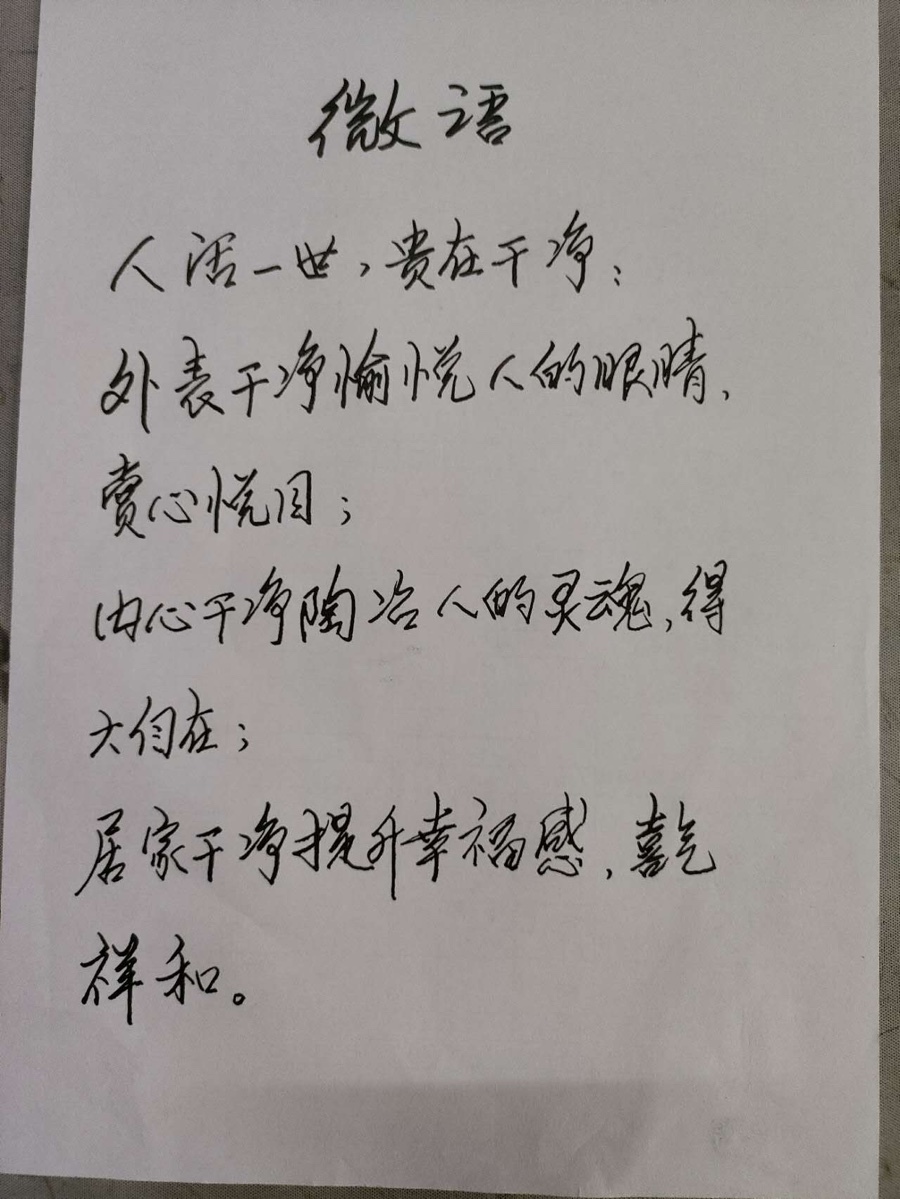 微语
人活一世，贵在干净：
外表干净愉悦人的眼睛，
赏心悦目；
内心干净陶冶人的灵魂，得
大自在；
居家干净提升幸福感，喜气
祥和。